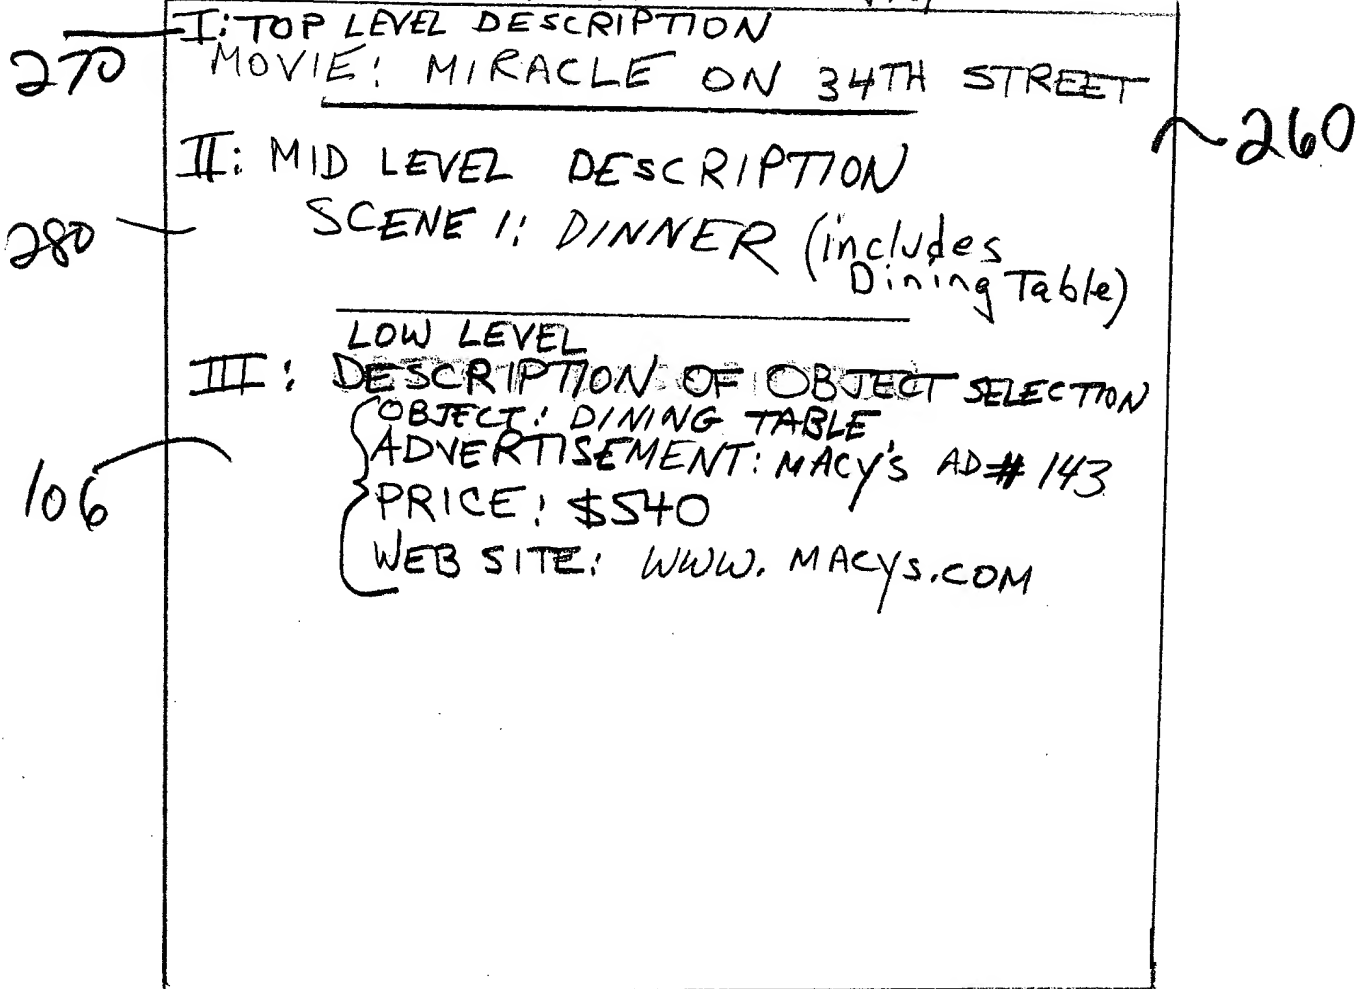 I: TOP LEVEL DESCRIPTION
270
MOVIE: MIRACLE ON 34TH STREET
260
II: MID LEVEL DESCRIPTION
280
SCENE 1: DINNER (includes
Dining Table)
LOW LEVEL
III: DESCRIPTION OF OBJECT SELECTION
OBJECT: DINING TABLE
ADVERTISEMENT: MACY'S AD # 143
106
PRICE: $540
WEB SITE: WWW. MACYS.COM